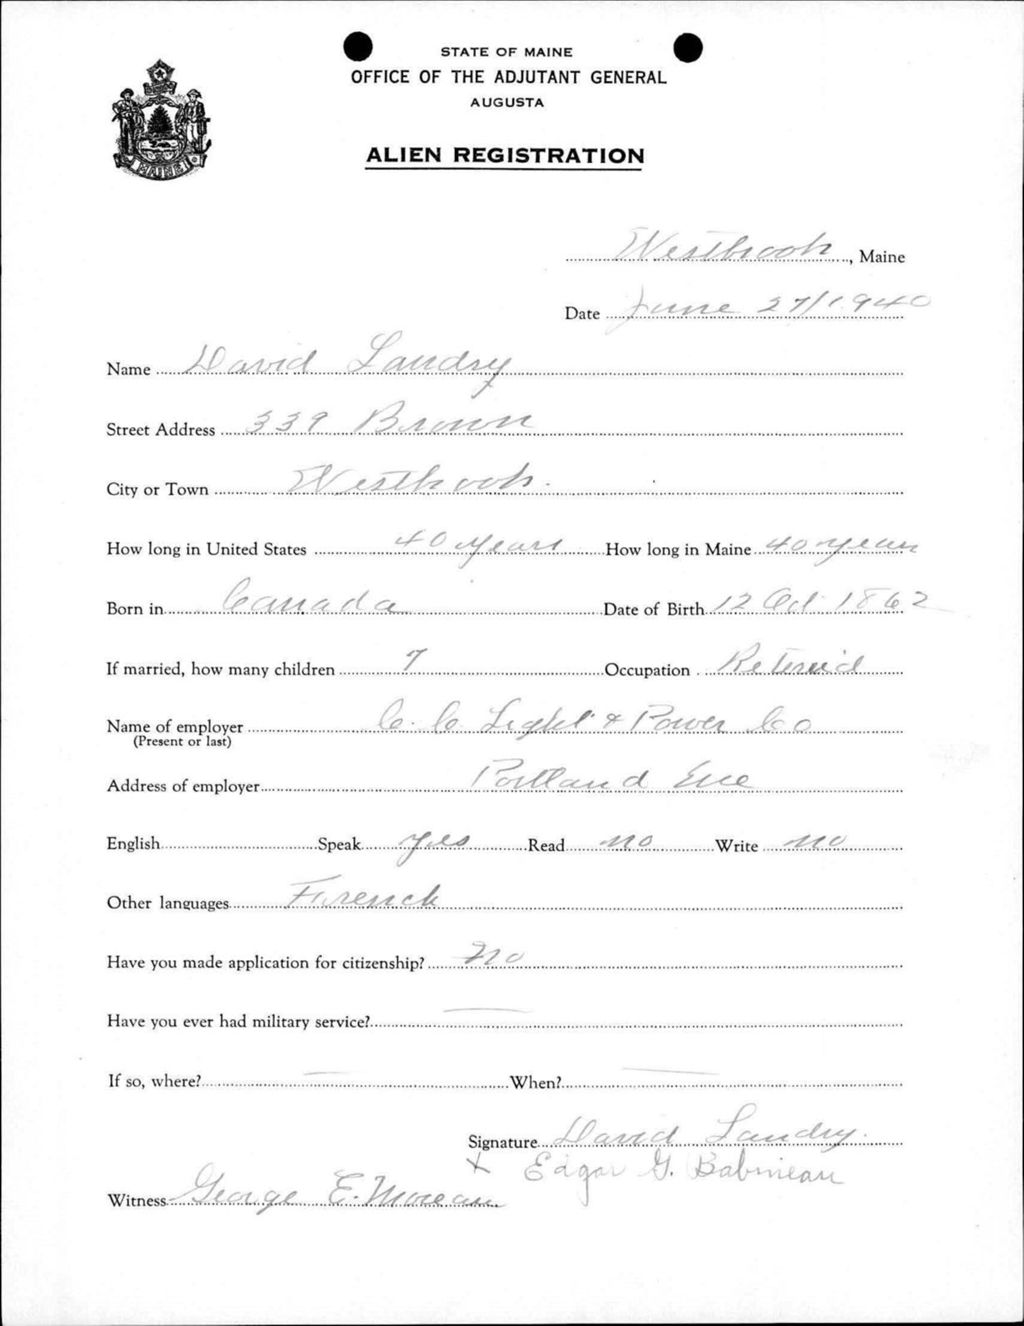 STATE OF MAINE
OFFICE OF THE ADJUTANT GENERAL
AUGUSTA
ALIEN REGISTRATION
MAINE
Westbrook, Maine
Date June 27/1940
Name David Landry
Street Address 339 Brown
City or Town Westbrook.
How long in United States 40 years How long in Maine 40 years
Born in Canada Date of Birth 12 Oct 1862
If married, how many children 7 Occupation Reteried
Name of employer C. C. Light & Power Co
(Present or last)
Address of employer Portland Me
English Speak Yes Read no Write no
Other languages French
Have you made application for citizenship? No
Have you ever had military service? —
If so, where? — When? —
Signature David Landry.
x Edgar G. Babineau
Witness George E. Moreau